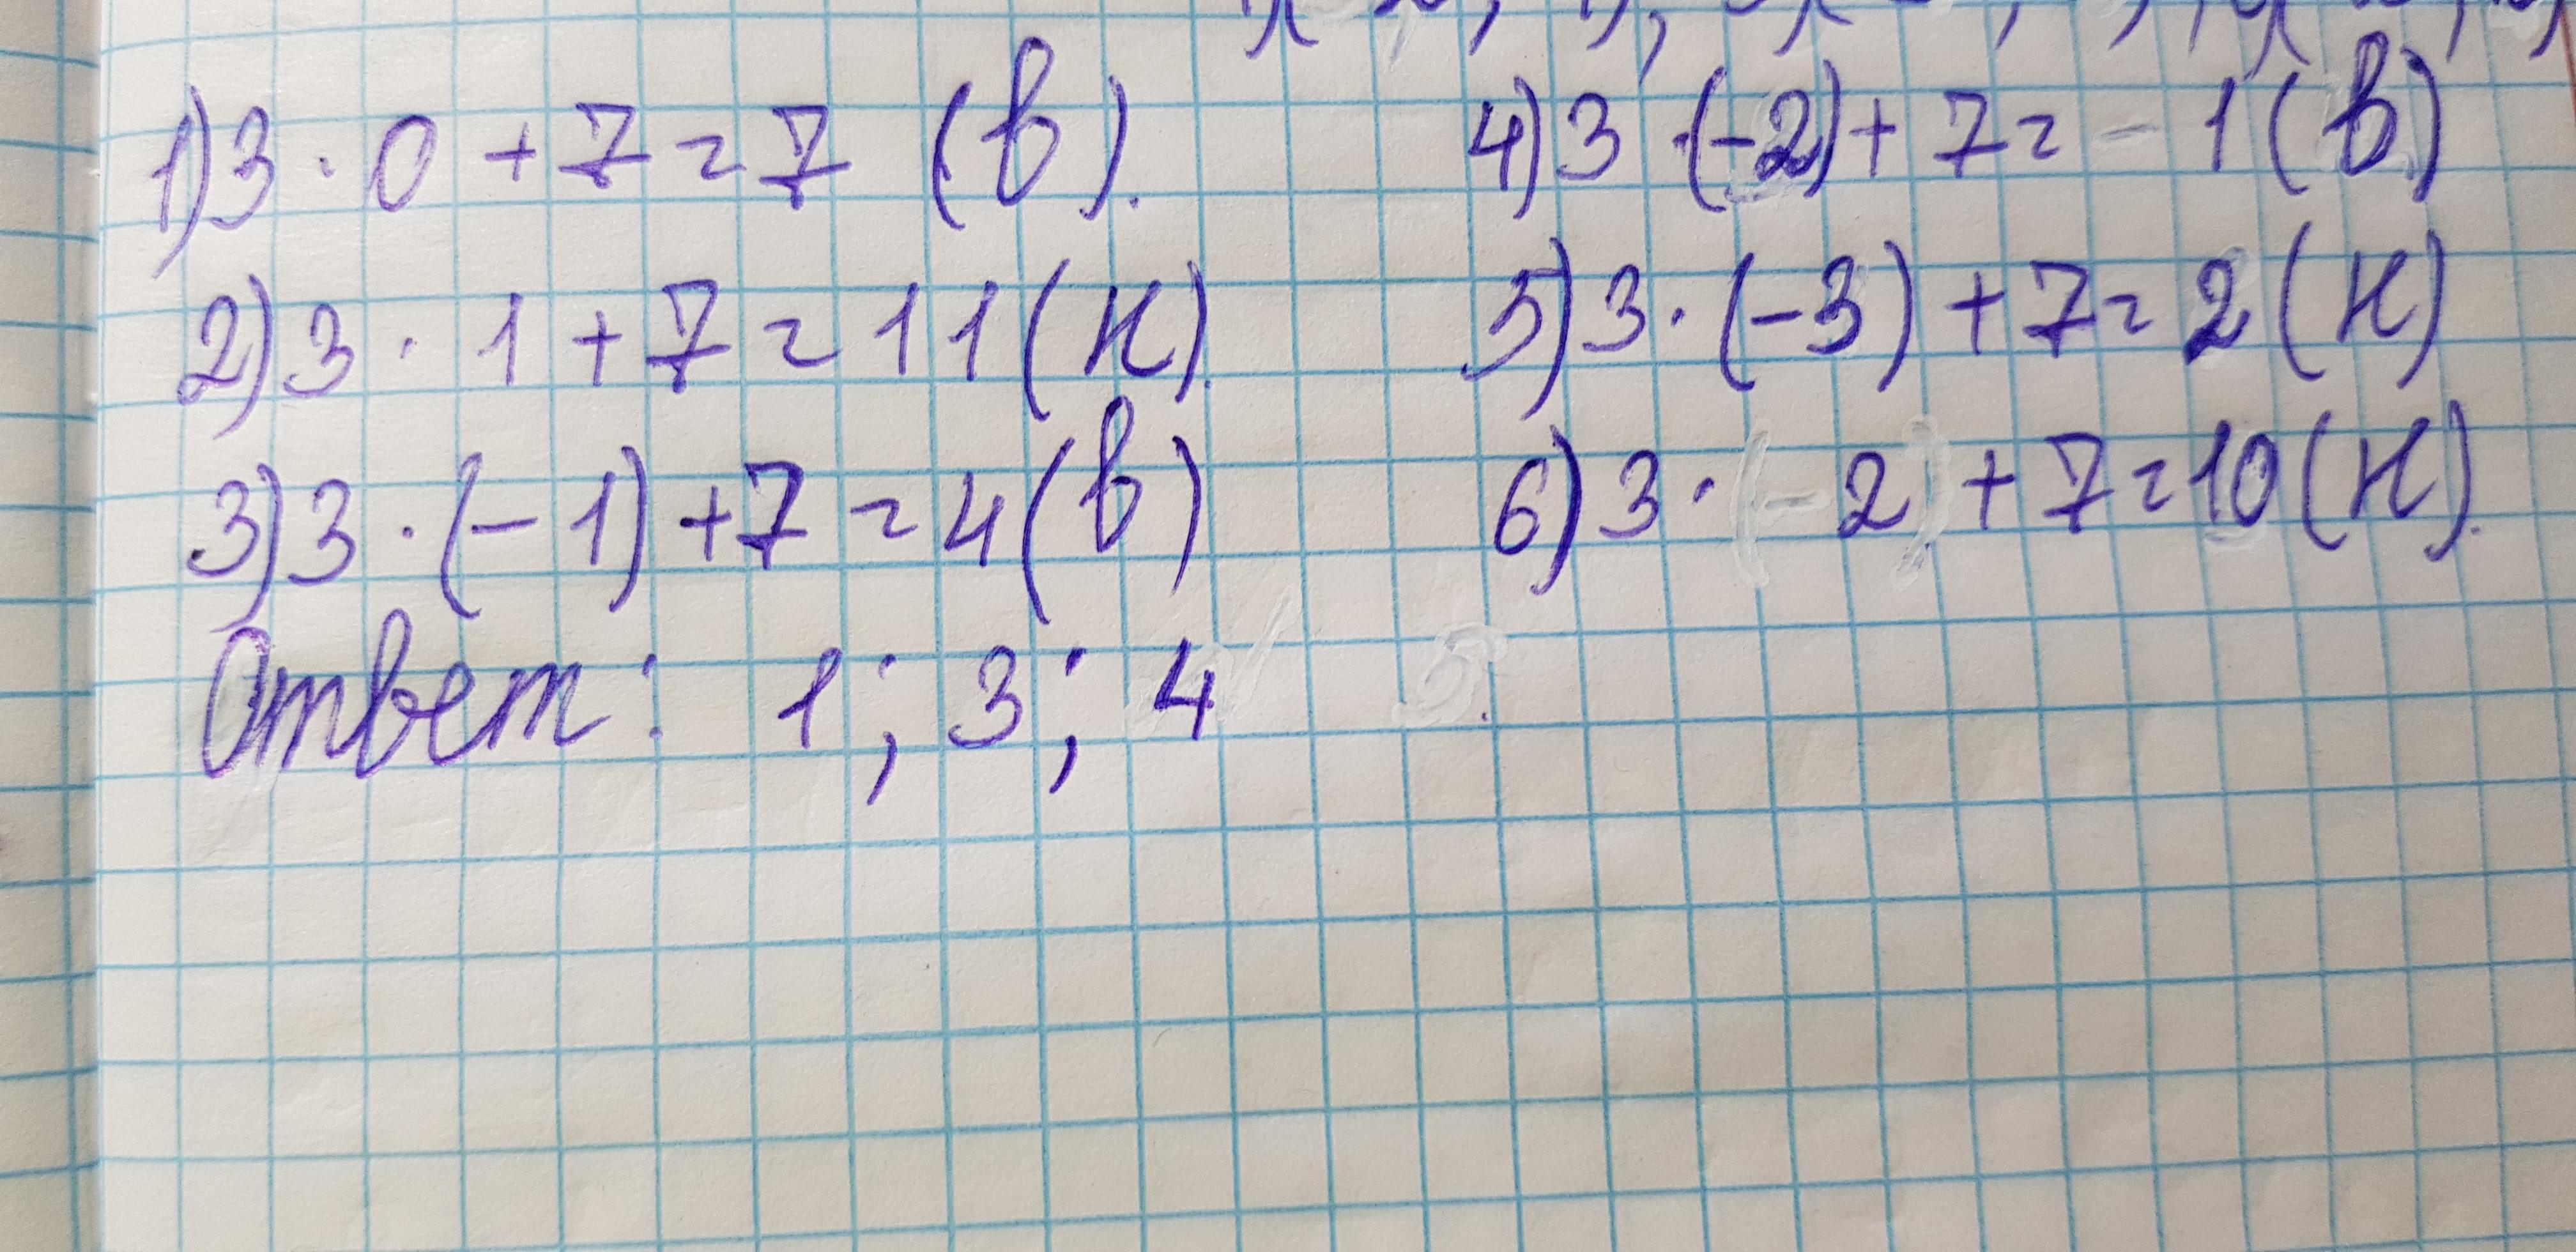 1) 3 · 0 + 7 = 7 (в).
2) 3 · 1 + 7 = 11 (н).
3) 3 · (-1) + 7 = 4 (в)
4) 3 · (-2) + 7 = 1 (в)
5) 3 · (-3) + 7 = 2 (н)
6) 3 · 2 + 7 = 10 (н).
Ответ: 1; 3; 4.